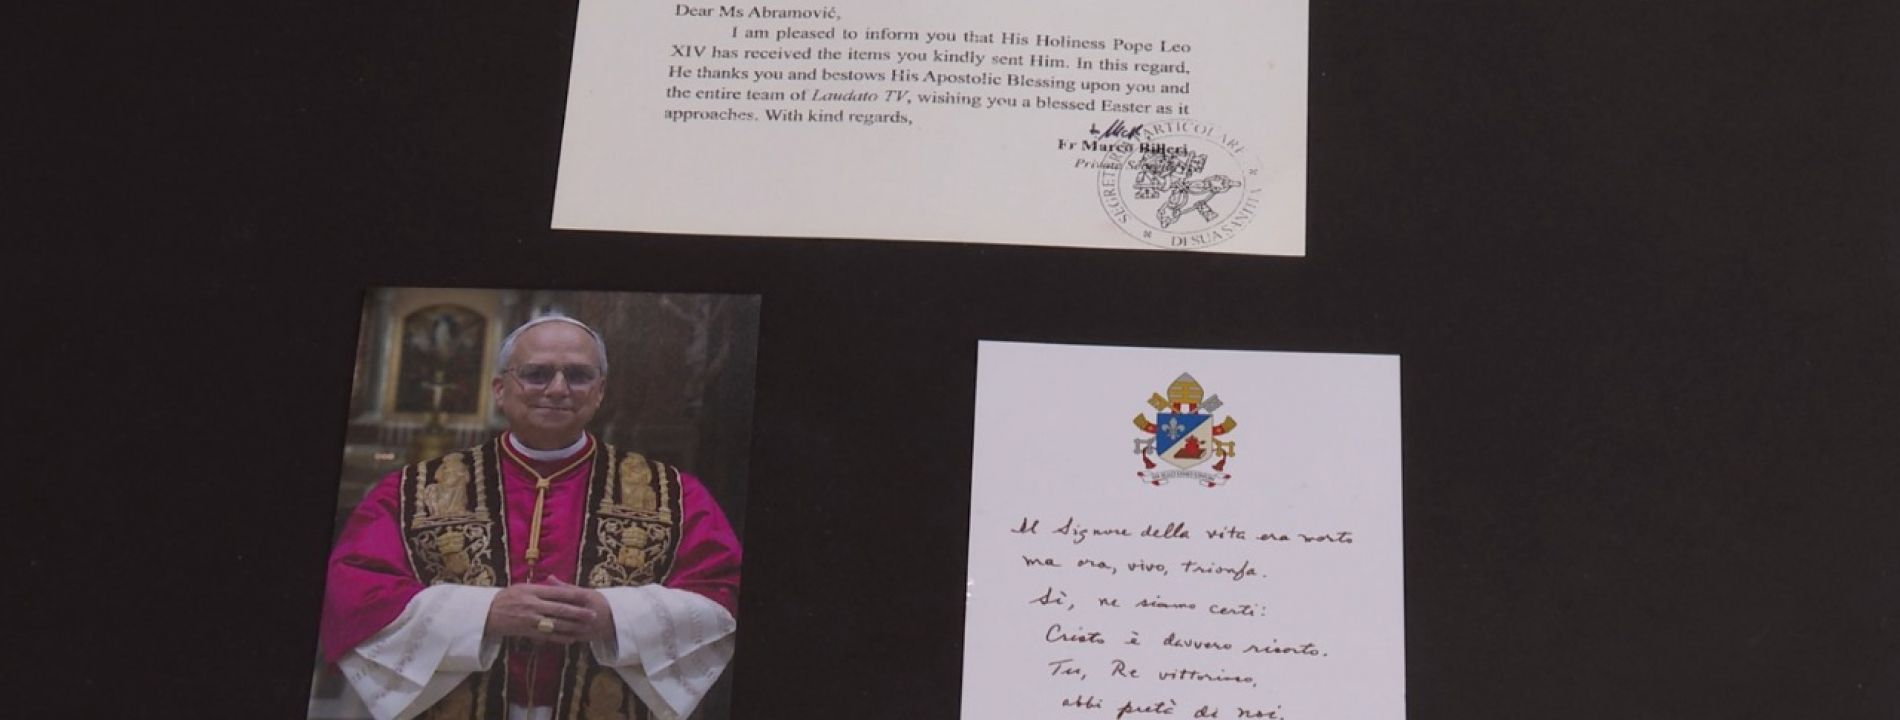 Dear Ms Abramović,
I am pleased to inform you that His Holiness Pope Leo
XIV has received the items you kindly sent Him. In this regard,
He thanks you and bestows His Apostolic Blessing upon you and
the entire team of Laudato TV, wishing you a blessed Easter as it
approaches. With kind regards,
Fr Marco Billeri
Private
SEGRETERIA PARTICOLARE
DI SUA SANTITÀ
Il Signore della vita era morto
ma ora, vivo, trionfa.
Sì, ne siamo certi:
Cristo è davvero risorto.
Tu, Re vittorioso,
abbi pietà di noi.